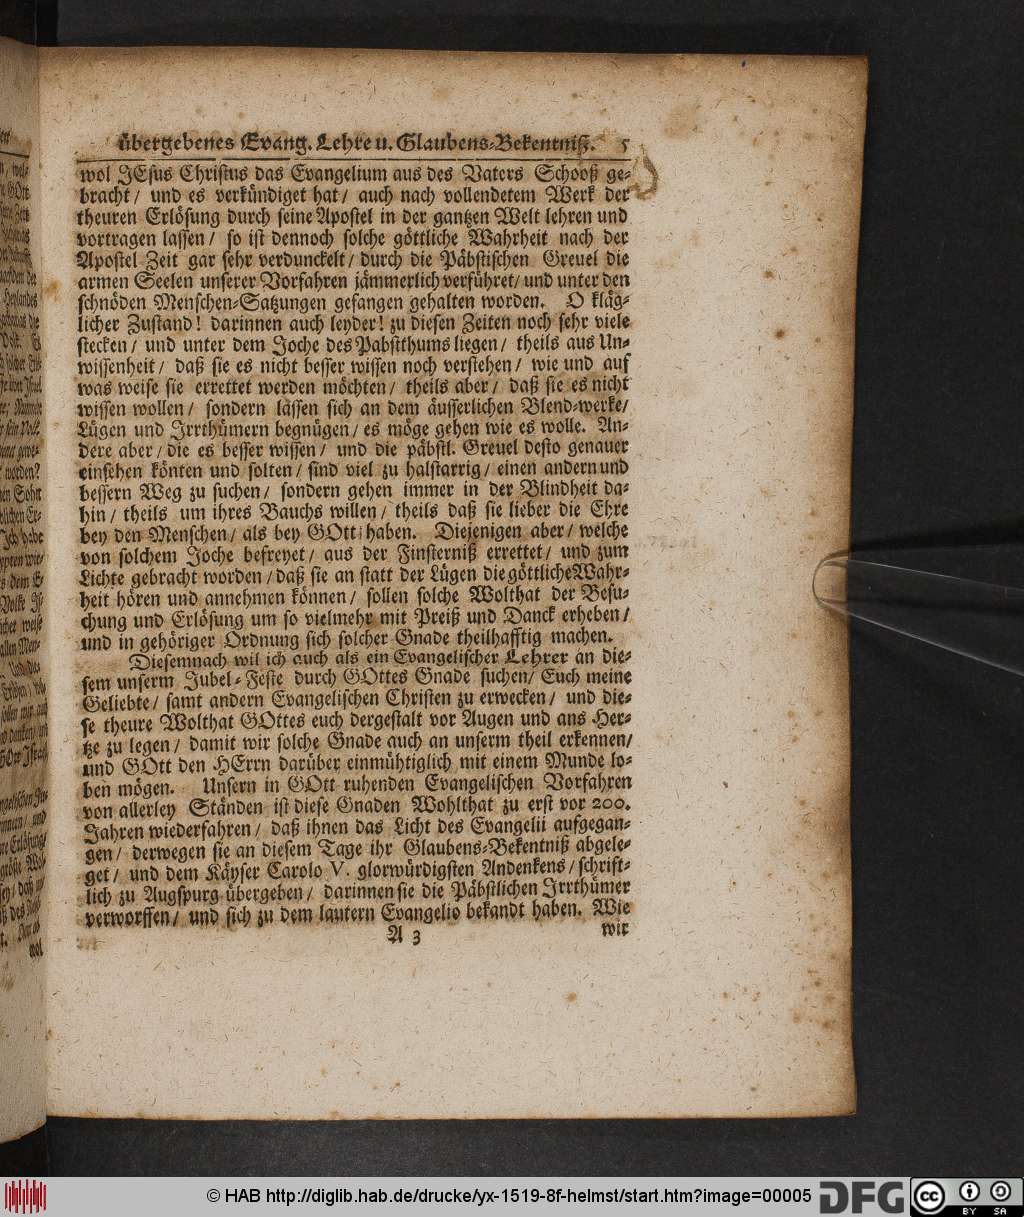 übergebenes Evang. Lehre u. Glaubens-Bekentniß. 5
wol JEsus Christus das Evangelium aus des Vaters Schooß ge-
bracht / und es verkündiget hat / auch nach vollendetem Werk der
theuren Erlösung durch seine Apostel in der gantzen Welt lehren und
vortragen lassen / so ist dennoch solche göttliche Wahrheit nach der
Apostel Zeit gar sehr verdunckelt / durch die Päbstischen Greuel die
armen Seelen unserer Vorfahren jämmerlich verführet / und unter den
schnöden Menschen-Satzungen gefangen gehalten worden. O kläg-
licher Zustand! darinnen auch leyder! zu diesen Zeiten noch sehr viele
stecken / und unter dem Joche des Pabstthums liegen / theils aus Un-
wissenheit / daß sie es nicht besser wissen noch verstehen / wie und auf
was weise sie errettet werden möchten / theils aber / daß sie es nicht
wissen wollen / sondern lassen sich an dem äusserlichen Blend-werke /
Lügen und Irrthümern begnügen / es möge gehen wie es wolle. An-
dere aber / die es besser wissen / und die päbstl. Greuel desto genauer
einsehen könten und solten / sind viel zu halstarrig / einen andern und
bessern Weg zu suchen / sondern gehen immer in der Blindheit da-
hin / theils um ihres Bauchs willen / theils daß sie lieber die Ehre
bey den Menschen / als bey GOtt haben. Diejenigen aber / welche
von solchem Joche befreyet / aus der Finsterniß errettet / und zum
Lichte gebracht worden / daß sie an statt der Lügen die göttliche Wahr-
heit hören und annehmen können / sollen solche Wolthat der Besu-
chung und Erlösung um so vielmehr mit Preiß und Danck erheben /
und in gehöriger Ordnung sich solcher Gnade theilhafftig machen.
Diesemnach wil ich auch als ein Evangelischer Lehrer an die-
sem unserm Jubel-Feste durch GOttes Gnade suchen / Euch meine
Geliebte / samt andern Evangelischen Christen zu erwecken / und die-
se theure Wolthat GOttes euch dergestalt vor Augen und ans Her-
tze zu legen / damit wir solche Gnade auch an unserm theil erkennen /
und GOtt den HErrn darüber einmühtiglich mit einem Munde lo-
ben mögen. Unsern in GOtt ruhenden Evangelischen Vorfahren
von allerley Ständen ist diese Gnaden Wohlthat zu erst vor 200.
Jahren wiederfahren / daß ihnen das Licht des Evangelii aufgegan-
gen / derwegen sie an diesem Tage ihr Glaubens-Bekentniß abgele-
get / und dem Käyser Carolo V. glorwürdigsten Andenkens / schrift-
lich zu Augspurg übergeben / darinnen sie die Päbstlichen Irrthümer
verworffen / und sich zu dem lautern Evangelio bekandt haben. Wie
A 3 wir
© HAB http://diglib.hab.de/drucke/yx-1519-8f-helmst/start.htm?image=00005
DFG
cc BY SA